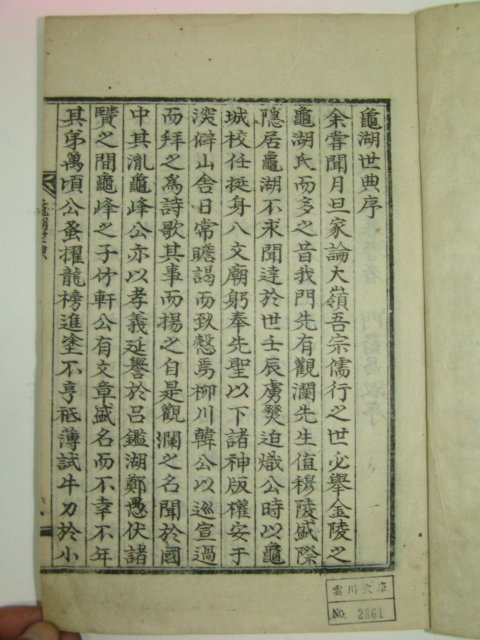 龜湖世典序
余嘗聞月旦家論大嶺吾宗儒行之世必舉金陵之
龜湖氏而多之昔我門先有觀瀾先生值穆陵盛際
隱居龜湖不求聞達於世壬辰虜燹迫熾公時以龜
城校任挺身入文廟躬奉先聖以下諸神版權安于
深僻山舍日常瞻謁而致慤焉柳川韓公以巡宣過
而拜之爲詩歌其事而揚之自是觀瀾之名聞於國
中其胤龜峰公亦以孝義延譽於呂鑑湖鄭愚伏諸
賢之間龜峰之子竹軒公有文章盛名而不幸不年
其弟萬頃公蚤擢龍榜進塗不亨祗薄試牛刀於小
雲川文庫
No. 2361